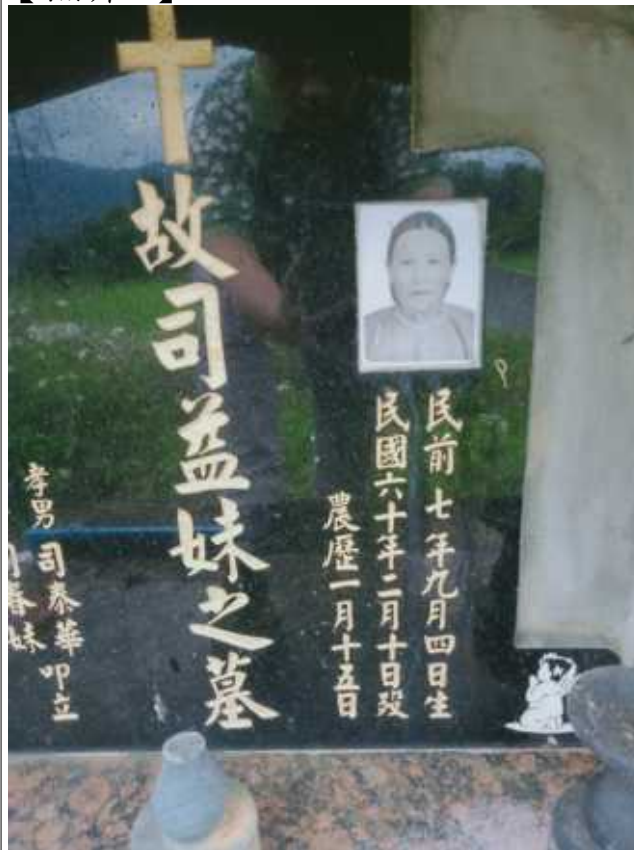 民前七年九月四日生
民國六十年二月十日歿
農歷一月十五日
故司益妹之墓
孝男 司泰華 叩立
司春妹